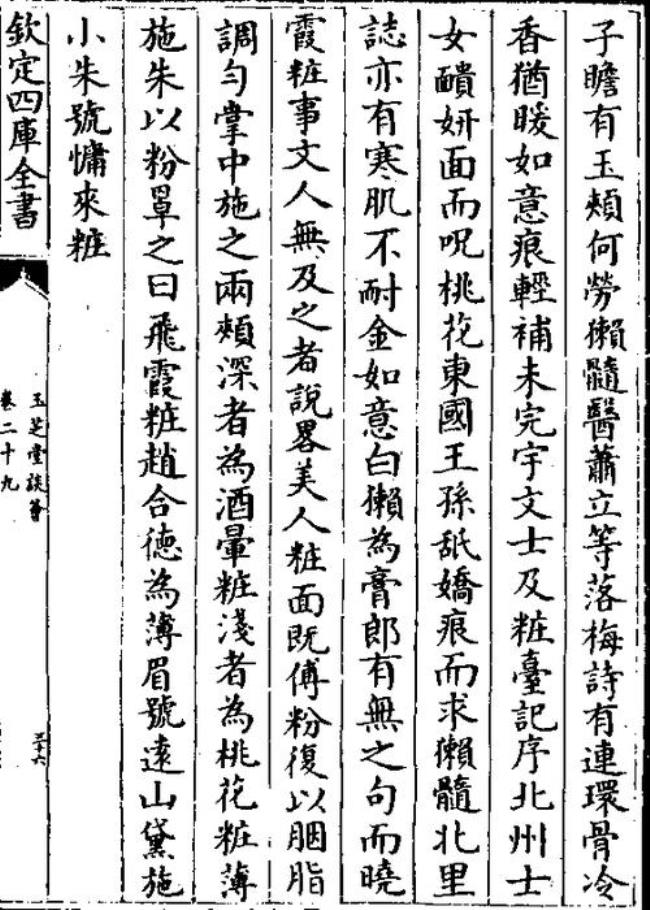 子瞻有玉頰何勞獺髓醫蕭立等落梅詩有連環骨冷
香猶暖如意痕輕補未完宇文士及粧臺記序北州士
女靧妍面而呪桃花東國王孫舐嬌痕而求獺髓北里
誌亦有寒肌不耐金如意白獺為膏郎有無之句而曉
霞粧事文人無及之者說畧美人粧面既傅粉復以胭脂
調勻掌中施之兩頰深者為酒暈粧淺者為桃花粧薄
施朱以粉罩之曰飛霞粧趙合徳為薄眉號遠山黛施
小朱號慵來粧
欽定四庫全書
玉芝堂談薈
卷二十九
三十六